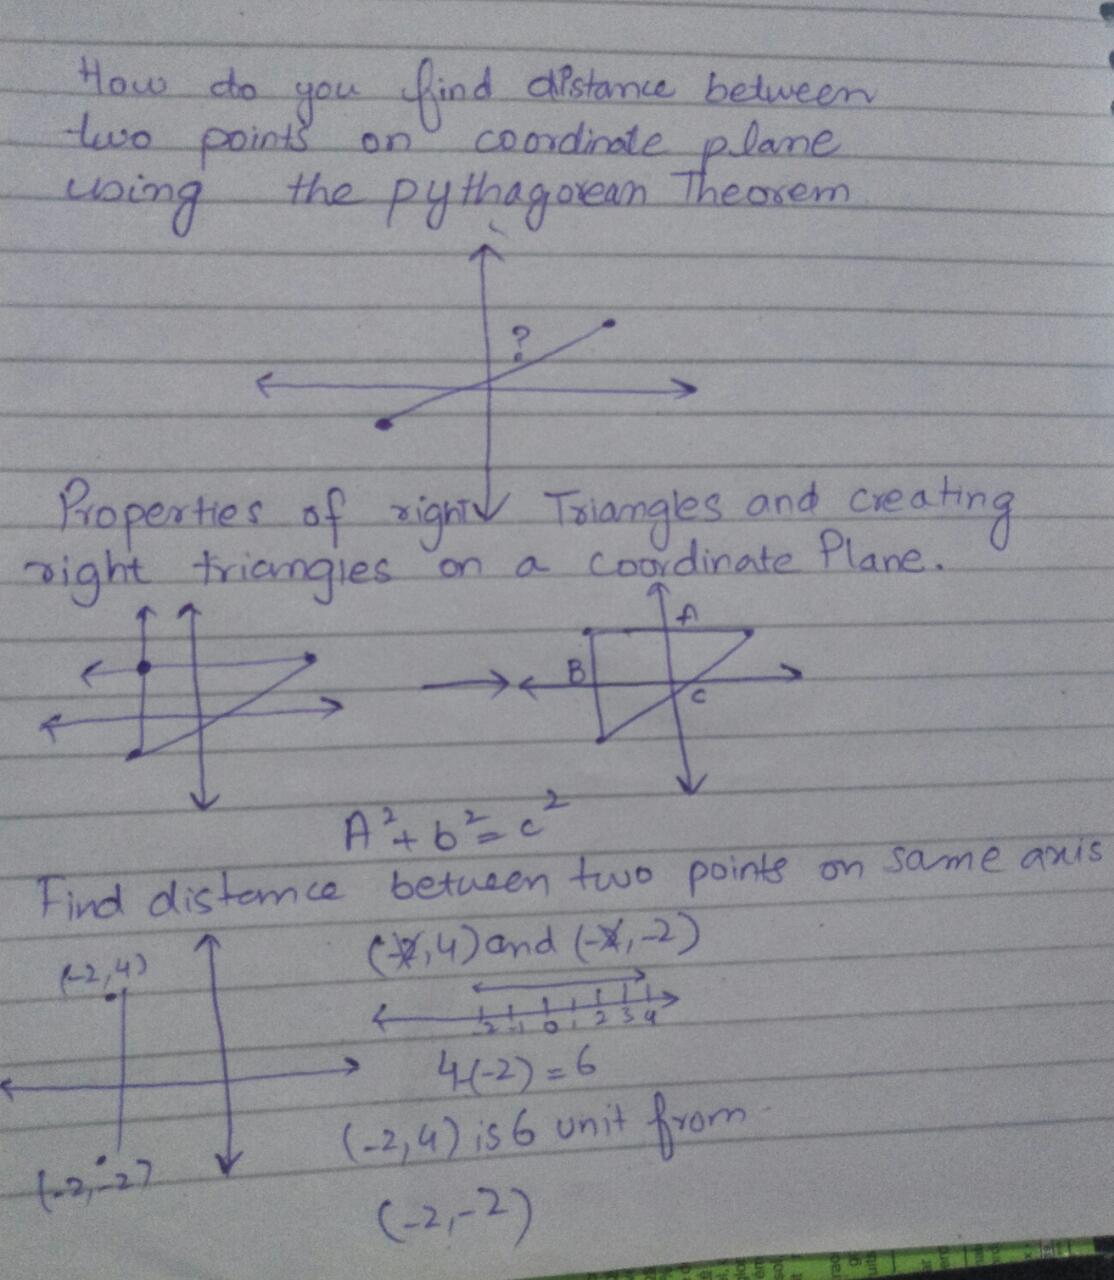 How do you find distance between
two points on coordinate plane
using the pythagorean Theorem
?
Properties of right Triangles and creating
right triangles on a coordinate Plane.
A
B
C
A²+b²=c²
Find distance between two points on same axis
(-2,4)
(-2,4) and (-2,-2)
-2 -1 0 1 2 3 4
4-(-2)=6
(-2,4) is 6 unit from
(-2,-2)
(-2,-2)